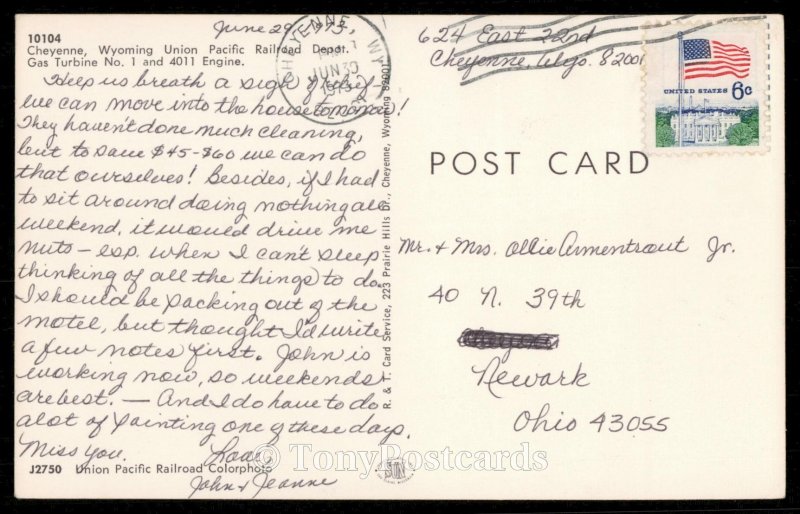 June 29, 1973,
10104
Cheyenne, Wyoming Union Pacific Railroad Depot.
Gas Turbine No. 1 and 4011 Engine.
Help us breath a sigh of relief-
we can move into the house tomorrow!
They haven't done much cleaning,
but to save $45-$60 we can do
that ourselves! Besides, if I had
to sit around doing nothing all
weekend, it would drive me
nuts - esp. when I can't sleep
thinking of all the things to do.
I should be packing out of the
motel, but thought I'd write
a few notes first. John is
working now, so weekends
are best. - And I do have to do
alot of painting one of these days.
Miss you. Love,
John & Jeanne
J2750 Union Pacific Railroad Colorphoto
R. & T. Card Service, 223 Prairie Hills Dr., Cheyenne, Wyoming 82001
CHEYENNE WY
JUN
1973
624 East 22nd
Cheyenne, Wyo. 82001
UNITED STATES 6c
POST CARD
Mr. & Mrs. Ollie Armentrout Jr.
40 N. 39th
Newark
Ohio 43055
© TonyPostcards